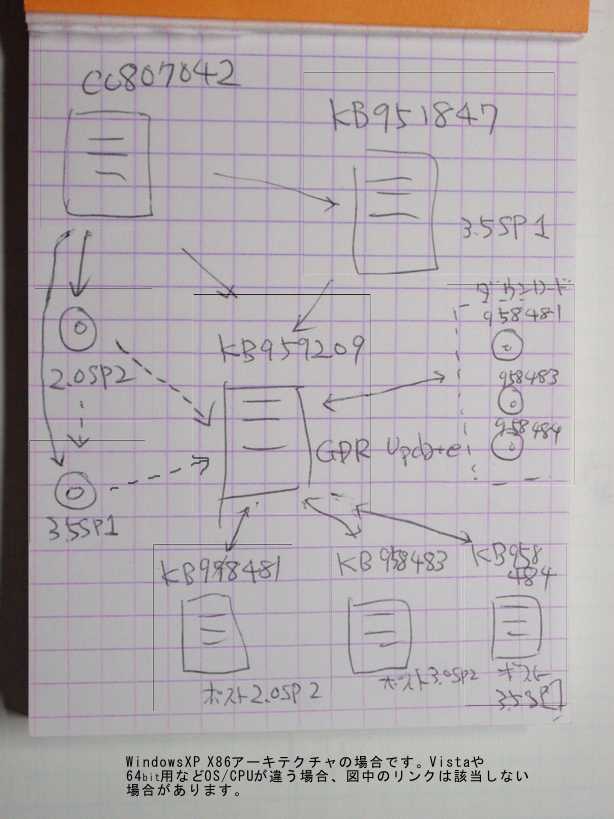 CC807042
KB951847
3.5SP1
ダウンロード
958481
KB959209
2.0SP2
958483
958484
GDR Update
3.5SP1
KB958481
KB958483
KB958
484
ポスト2.0SP2
ポスト3.0SP2
ポスト
3.5SP1
WindowsXP X86アーキテクチャの場合です。Vistaや
64bit用などOS/CPUが違う場合、図中のリンクは該当しない
場合があります。